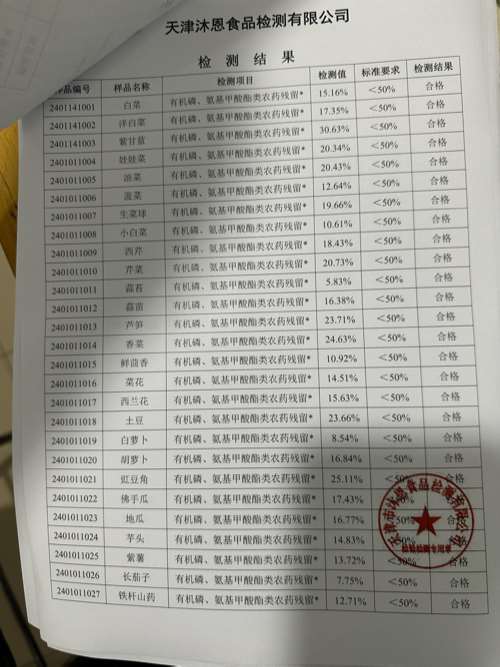 天津沐恩食品检测有限公司
检 测 结 果
样品编号 样品名称 检测项目 检测值 标准要求 检测结果
2401141001 白菜 有机磷、氨基甲酸酯类农药残留* 15.16% ＜50% 合格
2401141002 洋白菜 有机磷、氨基甲酸酯类农药残留* 17.35% ＜50% 合格
2401141003 紫甘蓝 有机磷、氨基甲酸酯类农药残留* 30.63% ＜50% 合格
2401011004 娃娃菜 有机磷、氨基甲酸酯类农药残留* 20.34% ＜50% 合格
2401011005 油菜 有机磷、氨基甲酸酯类农药残留* 20.43% ＜50% 合格
2401011006 菠菜 有机磷、氨基甲酸酯类农药残留* 12.64% ＜50% 合格
2401011007 生菜球 有机磷、氨基甲酸酯类农药残留* 19.66% ＜50% 合格
2401011008 小白菜 有机磷、氨基甲酸酯类农药残留* 10.61% ＜50% 合格
2401011009 西芹 有机磷、氨基甲酸酯类农药残留* 18.43% ＜50% 合格
2401011010 芹菜 有机磷、氨基甲酸酯类农药残留* 20.73% ＜50% 合格
2401011011 蒜苔 有机磷、氨基甲酸酯类农药残留* 5.83% ＜50% 合格
2401011012 蒜苗 有机磷、氨基甲酸酯类农药残留* 16.38% ＜50% 合格
2401011013 芦笋 有机磷、氨基甲酸酯类农药残留* 23.71% ＜50% 合格
2401011014 香菜 有机磷、氨基甲酸酯类农药残留* 24.63% ＜50% 合格
2401011015 鲜茴香 有机磷、氨基甲酸酯类农药残留* 10.92% ＜50% 合格
2401011016 菜花 有机磷、氨基甲酸酯类农药残留* 14.51% ＜50% 合格
2401011017 西兰花 有机磷、氨基甲酸酯类农药残留* 15.63% ＜50% 合格
2401011018 土豆 有机磷、氨基甲酸酯类农药残留* 23.66% ＜50% 合格
2401011019 白萝卜 有机磷、氨基甲酸酯类农药残留* 8.54% ＜50% 合格
2401011020 胡萝卜 有机磷、氨基甲酸酯类农药残留* 16.84% ＜50% 合格
2401011021 豇豆角 有机磷、氨基甲酸酯类农药残留* 25.11% ＜50% 合格
2401011022 佛手瓜 有机磷、氨基甲酸酯类农药残留* 17.43% ＜50% 合格
2401011023 地瓜 有机磷、氨基甲酸酯类农药残留* 16.77% ＜50% 合格
2401011024 芋头 有机磷、氨基甲酸酯类农药残留* 14.83% ＜50% 合格
2401011025 紫薯 有机磷、氨基甲酸酯类农药残留* 13.72% ＜50% 合格
2401011026 长茄子 有机磷、氨基甲酸酯类农药残留* 7.75% ＜50% 合格
2401011027 铁杆山药 有机磷、氨基甲酸酯类农药残留* 12.71% ＜50% 合格
天津市沐恩食品检测有限公司
检验检测专用章